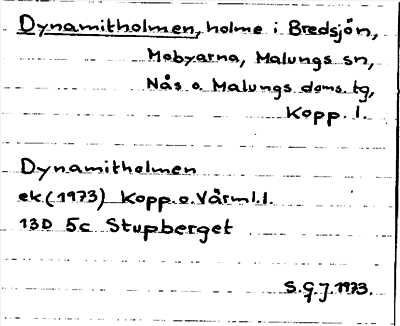 Dynamitholmen, holme i Bredsjön,
Mobyarna, Malungs sn,
Nås o. Malungs doms. tg,
Kopp. l.
Dynamitholmen
ek. (1973) Kopp. o. Värml. l.
13D 5c Stupberget
S.G.J. 1973.